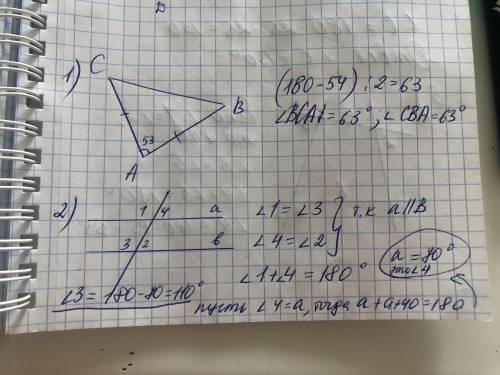 1)
C
B
A
53
(180-54) : 2=63
∠BCA=63°; ∠CBA=63°
2)
1 4 a
3 2 b
∠1=∠3 } т.к a||B
∠4=∠2
∠1+∠4=180°
a=70°
это∠4
∠3=180-70=110°
пусть ∠4=a, тогда a+a+40=180